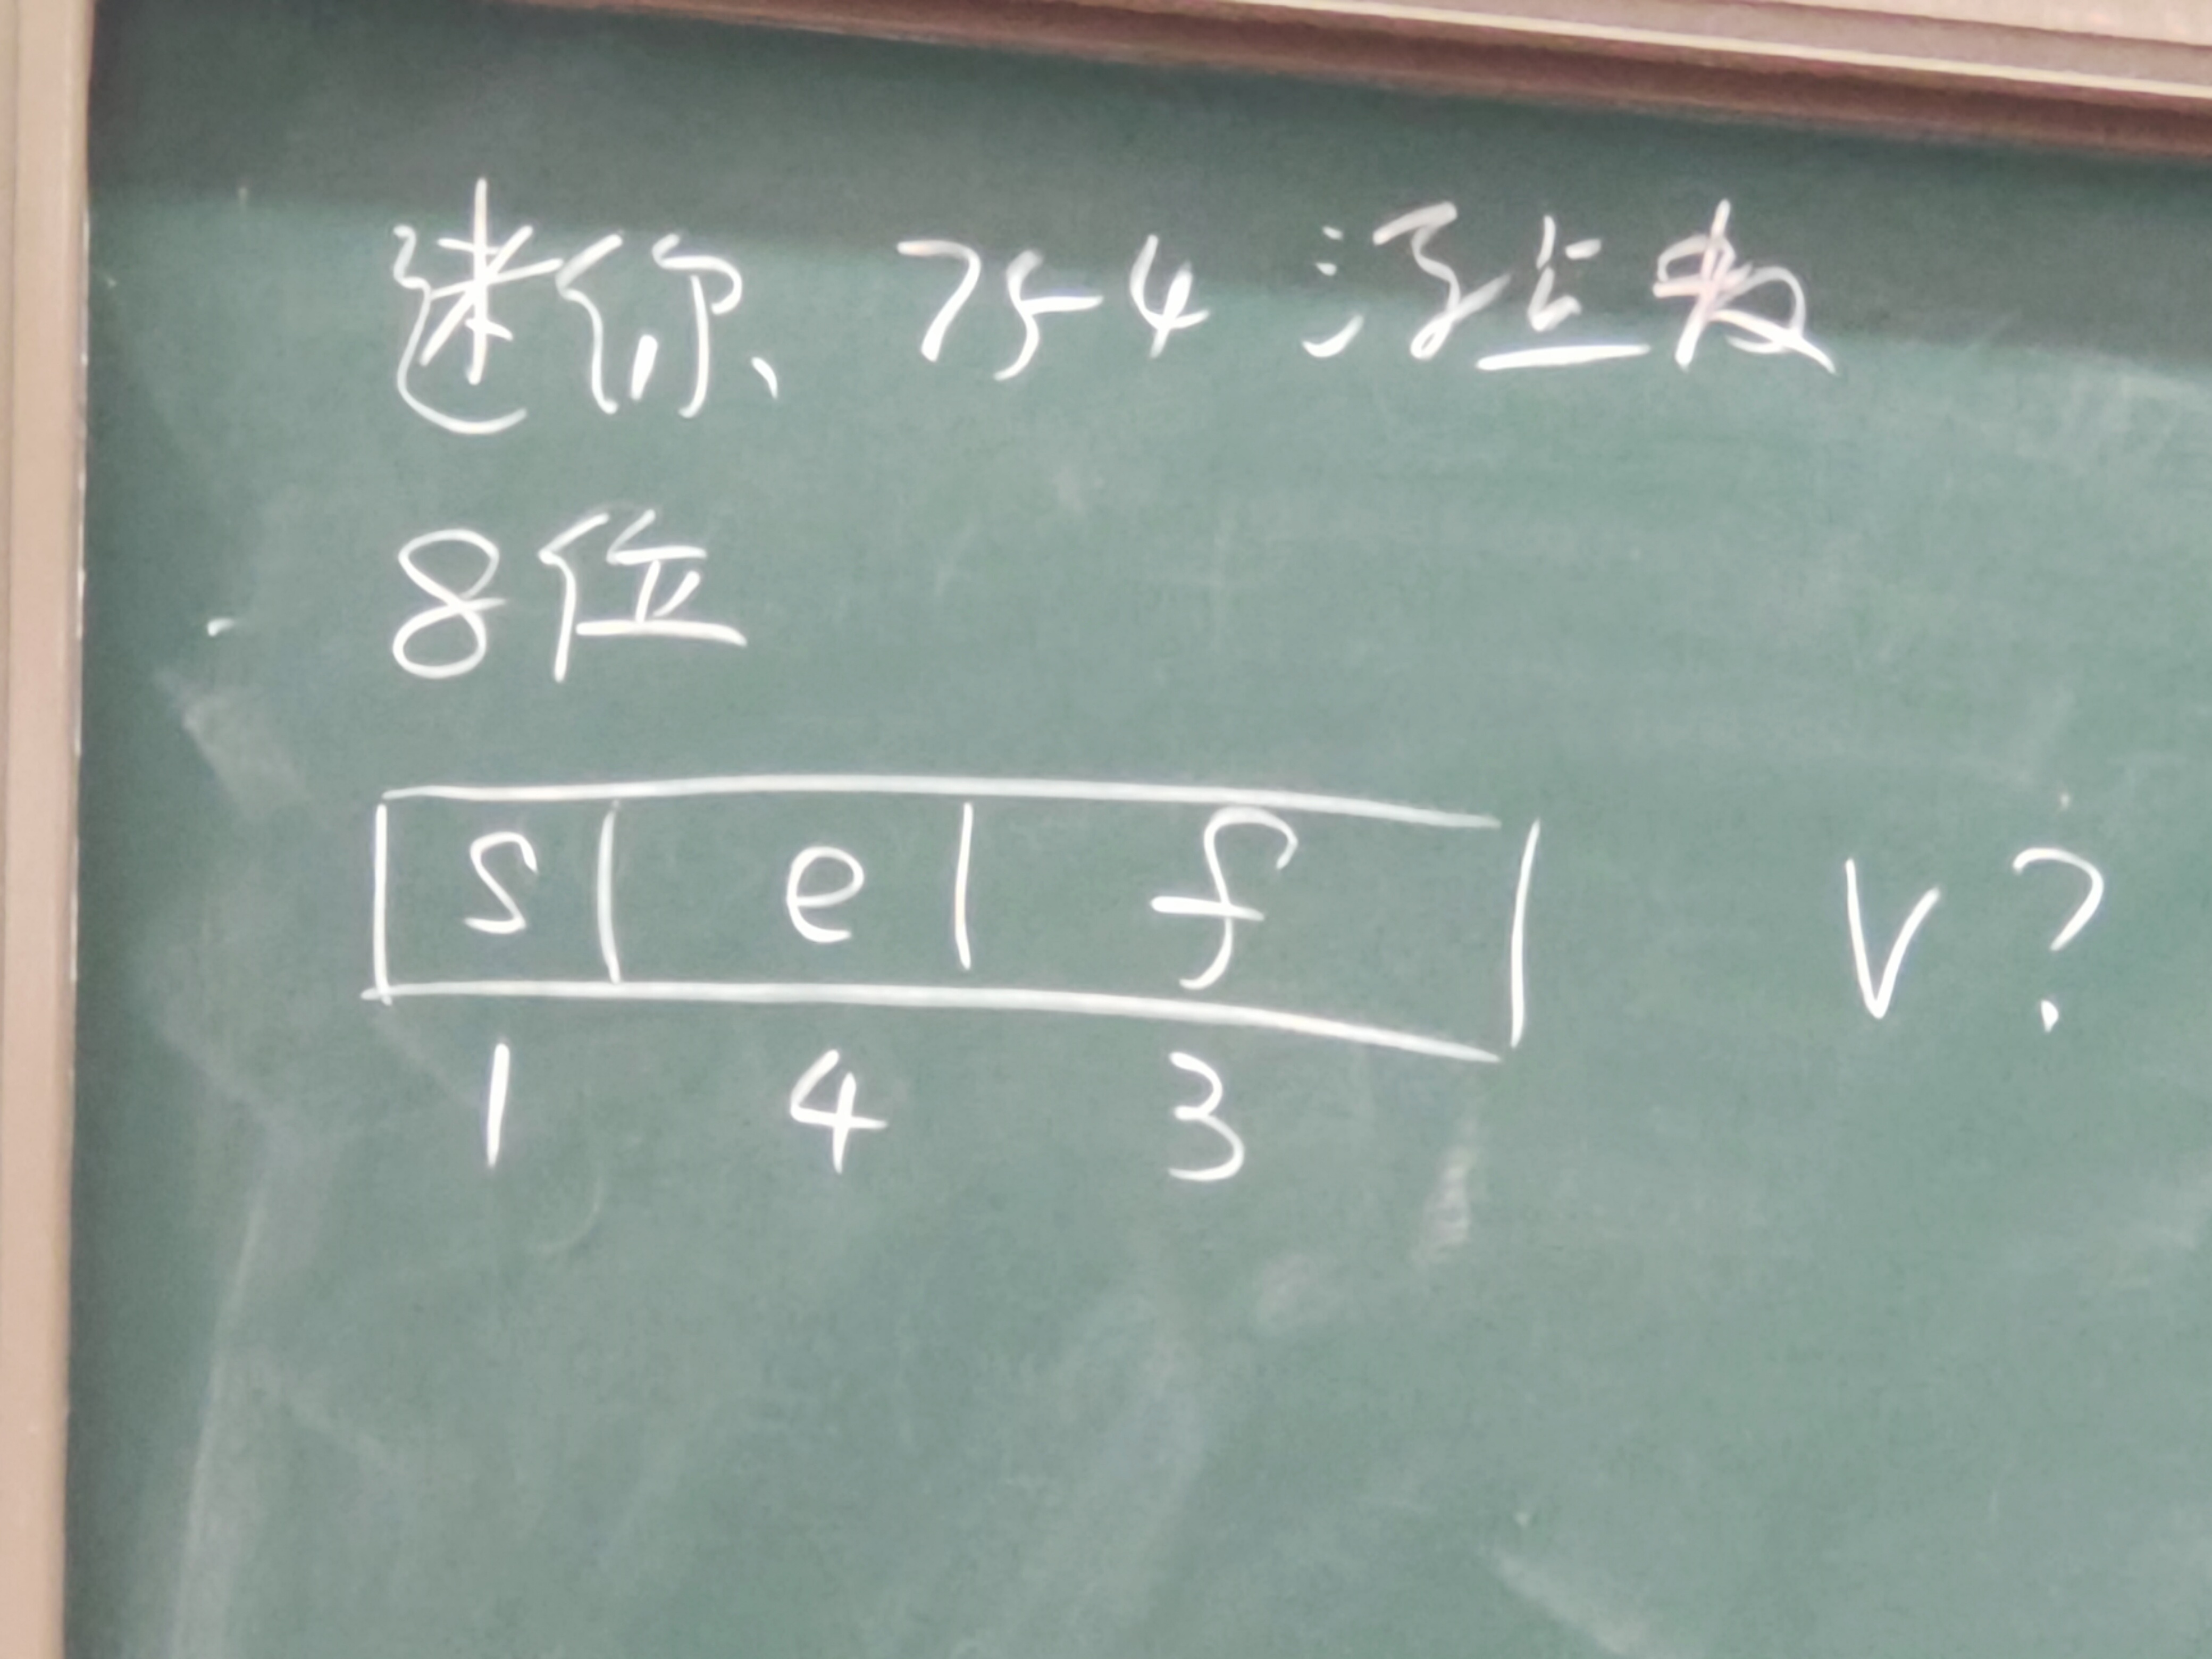 迷你 754 浮点数
8位
s e f V?
1 4 3